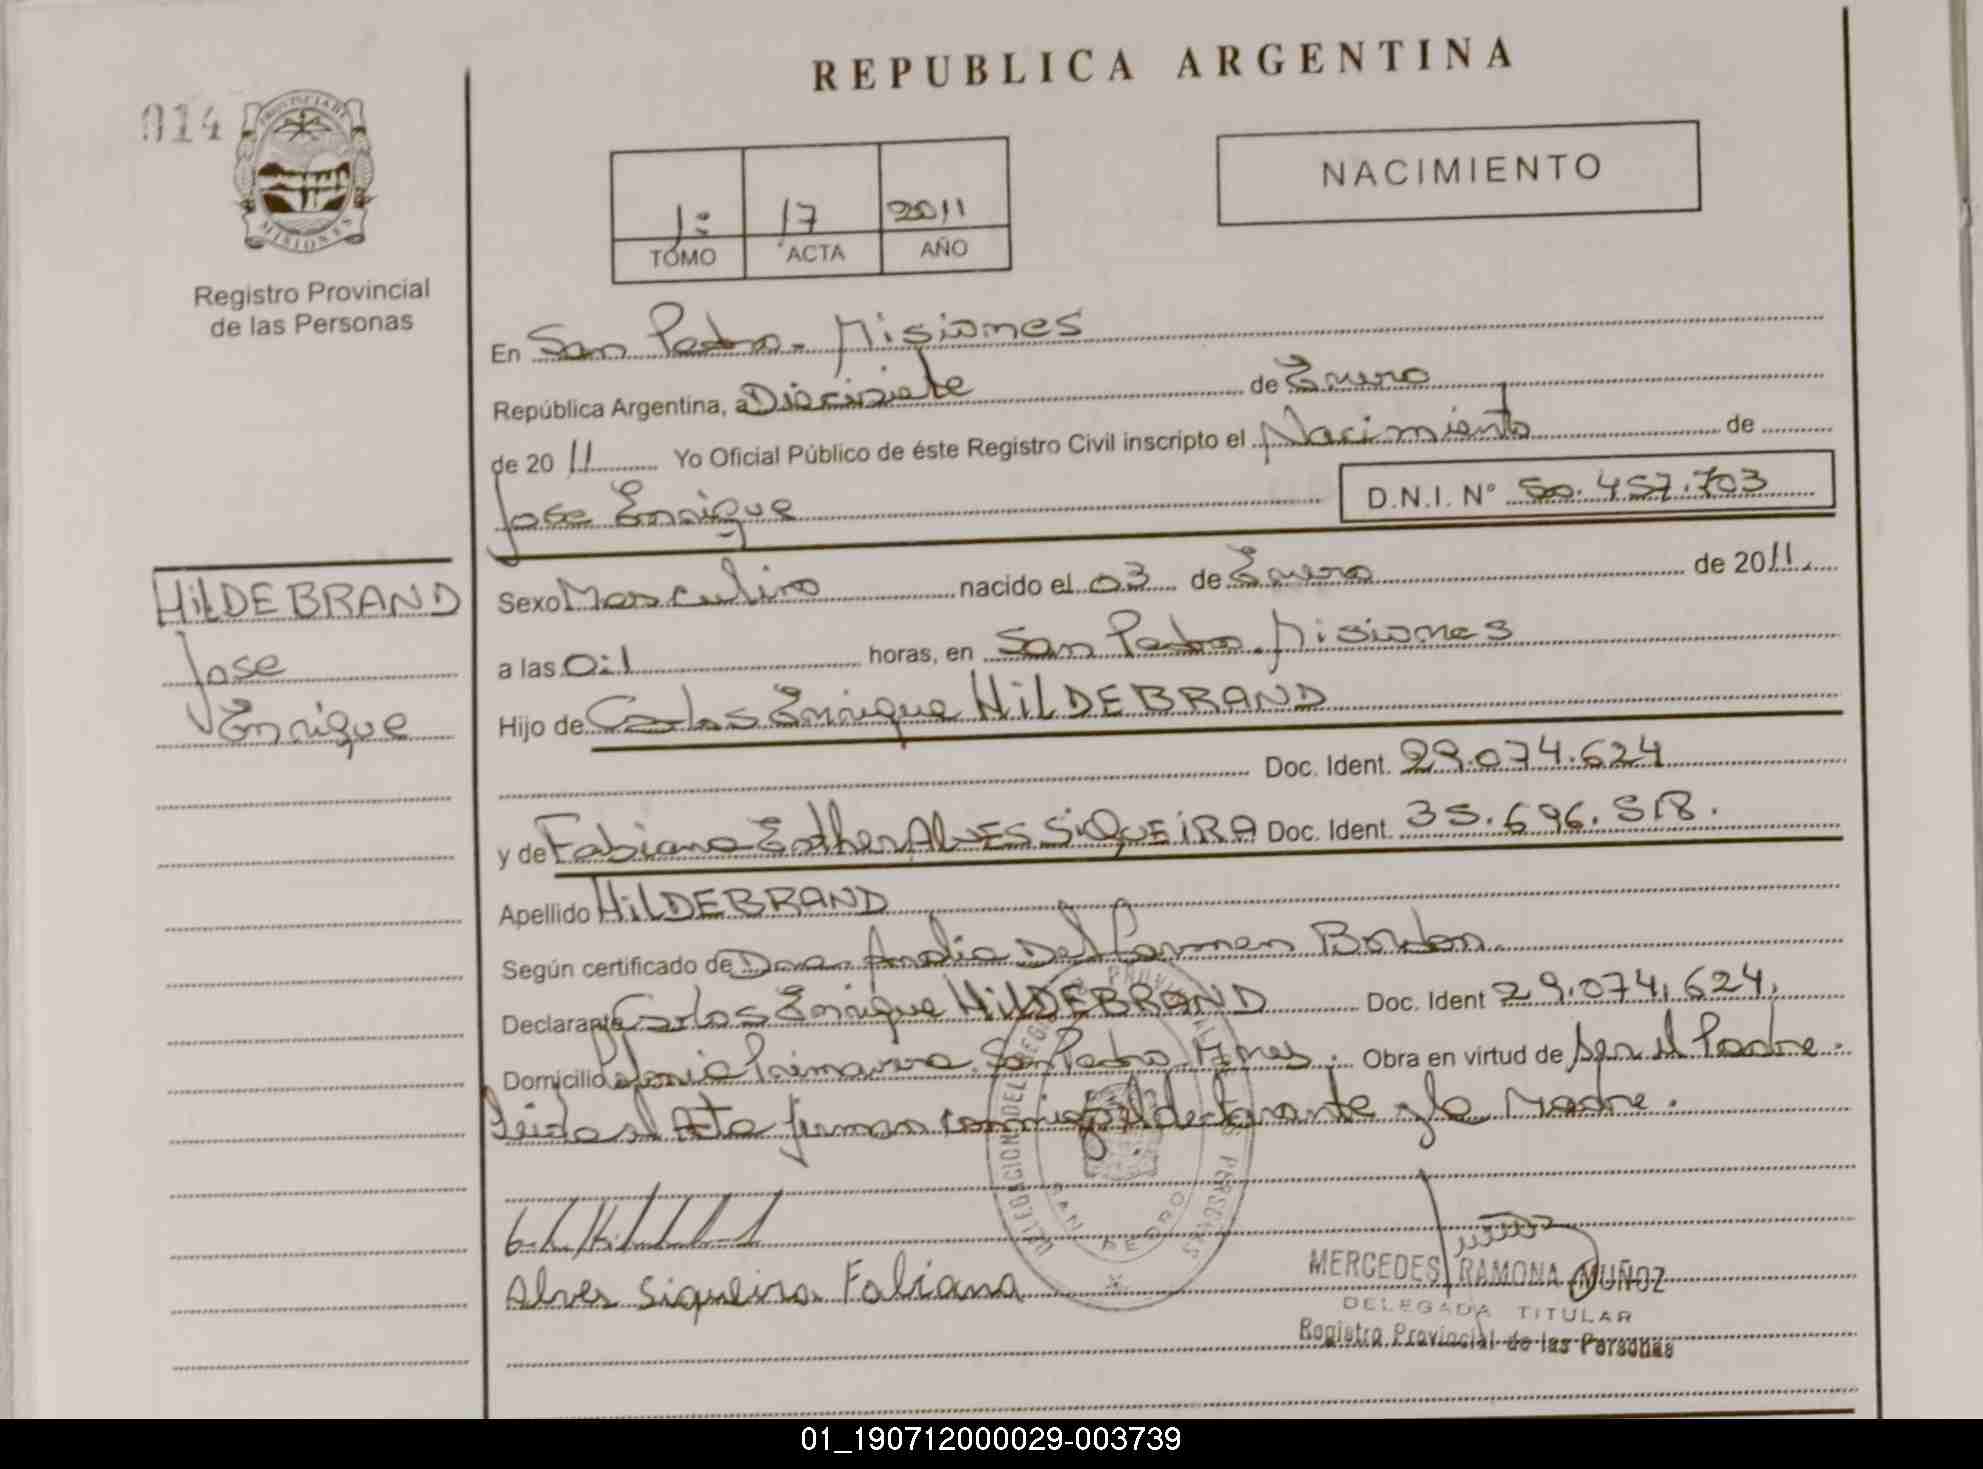 REPUBLICA ARGENTINA
014
PROVINCIA DE
MISIONES
Registro Provincial
de las Personas
NACIMIENTO
1: 17 2011
TOMO ACTA AÑO
En San Pedro - Misiones
República Argentina, a Diecisiete de Enero
de 2011 Yo Oficial Público de éste Registro Civil inscripto el Nacimiento de
Jose Enrique D.N.I. N° 50.457.703
HilDEBRAND
Jose
Enrique
Sexo Masculino nacido el 03 de Enero de 2011.
a las 0:1 horas, en San Pedro - Misiones
Hijo de Carlos Enrique HilDEBRAND
Doc. Ident. 29.074.624
y de Fabiana Esther AlvES SiQuEiRA Doc. Ident. 35.696.518.
Apellido HilDEBRAND
Según certificado de Dra. Analia Del Carmen Bordon
Declarante Carlos Enrique HilDEBRAND Doc. Ident 29.074.624.
Domicilio Colonia Primavera San Pedro Mnes. Obra en virtud de Ser el Padre.
Leida el Acta firman conmigo el declarante y la Madre.
DELEGACION DEL REGISTRO PROVINCIAL DE LAS PERSONAS
SAN PEDRO
Alves Siqueira Fabiana
MERCEDES RAMONA MUÑOZ
DELEGADA TITULAR
Registro Provincial de las Personas
01_190712000029-003739